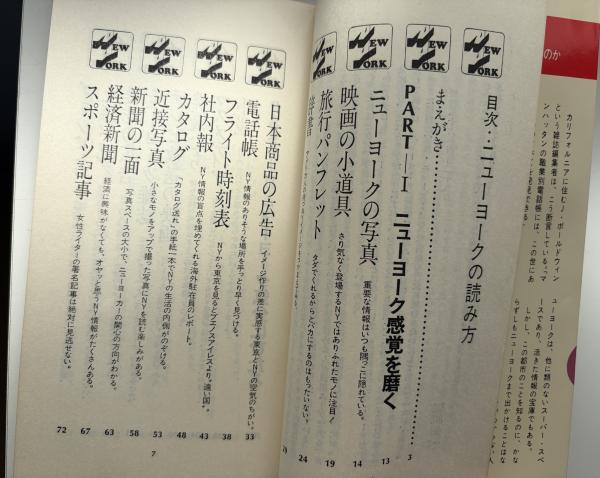 のか
カリフォルニアに住むJ・ボールドウィン
という雑誌編集者は、こう断言している。「マ
ンハッタンの職業別電話帳には、この世にあ
発見できる。
ューヨークは、他に類のないスーパー・スペ
ースであり、活きた情報の宝庫でもある。
しかし、この都市のことを知るのに、かな
らずしもニューヨークまで出かけることはな
人
NEW YORK
NEW YORK
NEW YORK
NEW YORK
目次：ニューヨークの読み方
まえがき 3
PART—I ニューヨーク感覚を磨く 13
ニューヨークの写真 重要な情報はいつも隅っこに隠れている。 14
映画の小道具 さり気なく登場するNYではありふれたモノに注目！ 19
旅行パンフレット タダでくれるからとバカにするのはもったいない。 24
NEW YORK
NEW YORK
NEW YORK
NEW YORK
日本商品の広告 イメージ作りの差に実感する東京とNYの空気のちがい。 33
電話帳 NY情報のありそうな場所を手っとり早く見つける。 38
フライト時刻表 NYから東京を見るとブエノスアイレスより。遠い国。 43
社内報 NY情報の盲点を埋めてくれる海外駐在員のレポート。 48
カタログ 「カタログ送れ」の手紙一本でNYの生活の内側がのぞける。 53
近接写真 小さなモノをアップで撮った写真にNYを読む楽しみがある。 58
新聞の一面 写真スペースの大小で、ニューヨーカーの関心の方向がわかる。 63
経済新聞 経済に興味がなくても、オヤッと思うNY情報がたくさんある。 67
スポーツ記事 女性ライターの署名記事は絶対に見逃せない。 72
7